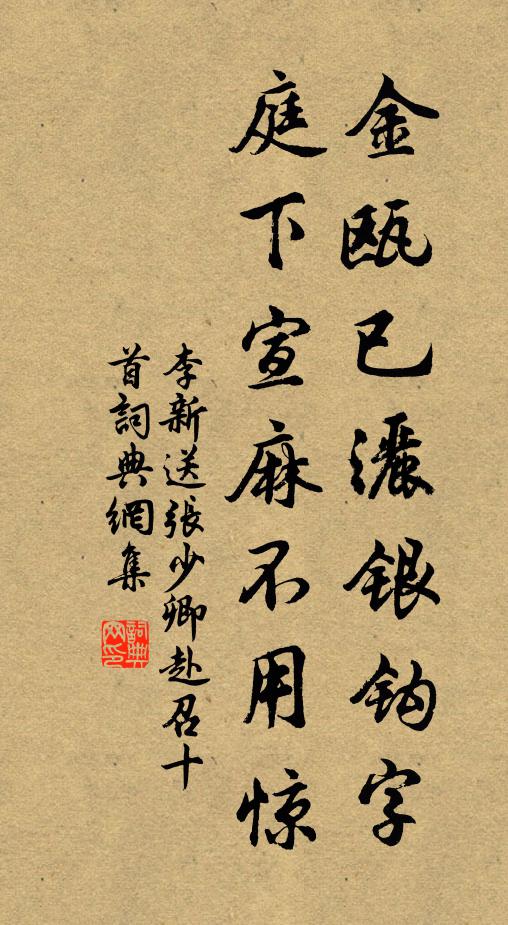 金瓯已灑银钩字
庭下宣麻不用惊
李新送張少卿赴召十
首詞典網集
詞典
网印